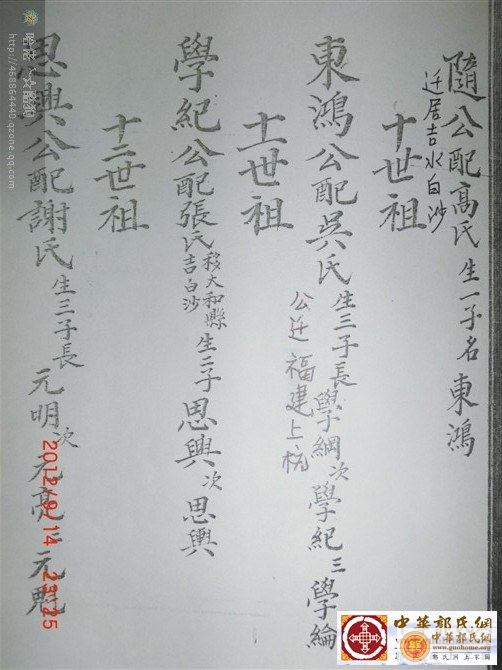 隨公配高氏生一子名東鴻
迁居吉水白沙
十世祖
東鴻公配吳氏生三子長學綱次學紀三學綸
公迁福建上杭
十一世祖
學紀公配張氏移大和縣吉白沙生二子思興次思興
十二世祖
思興公配謝氏生三子長元明次元亮三元魁
2012/9/14 23:25
http://468864440.qzone.qq.com
中華郭氏網
www.guohome.org
郭氏网上家园